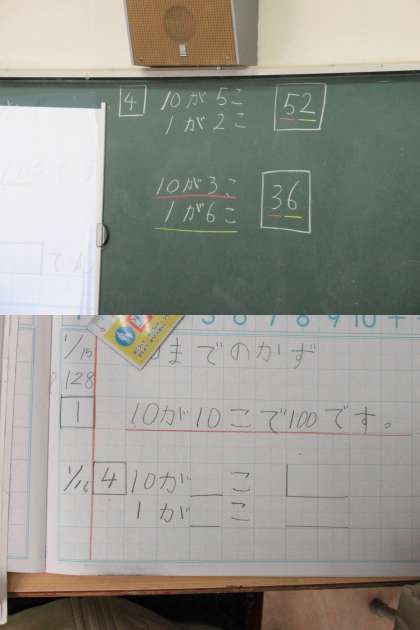 4 10が5こ 52
1が2こ
10が3こ 36
1が6こ
5 6 7 8 9 10
1/15 までのかず
128
1 10が10こで100です。
1/16 4 10が__こ
1が__こ